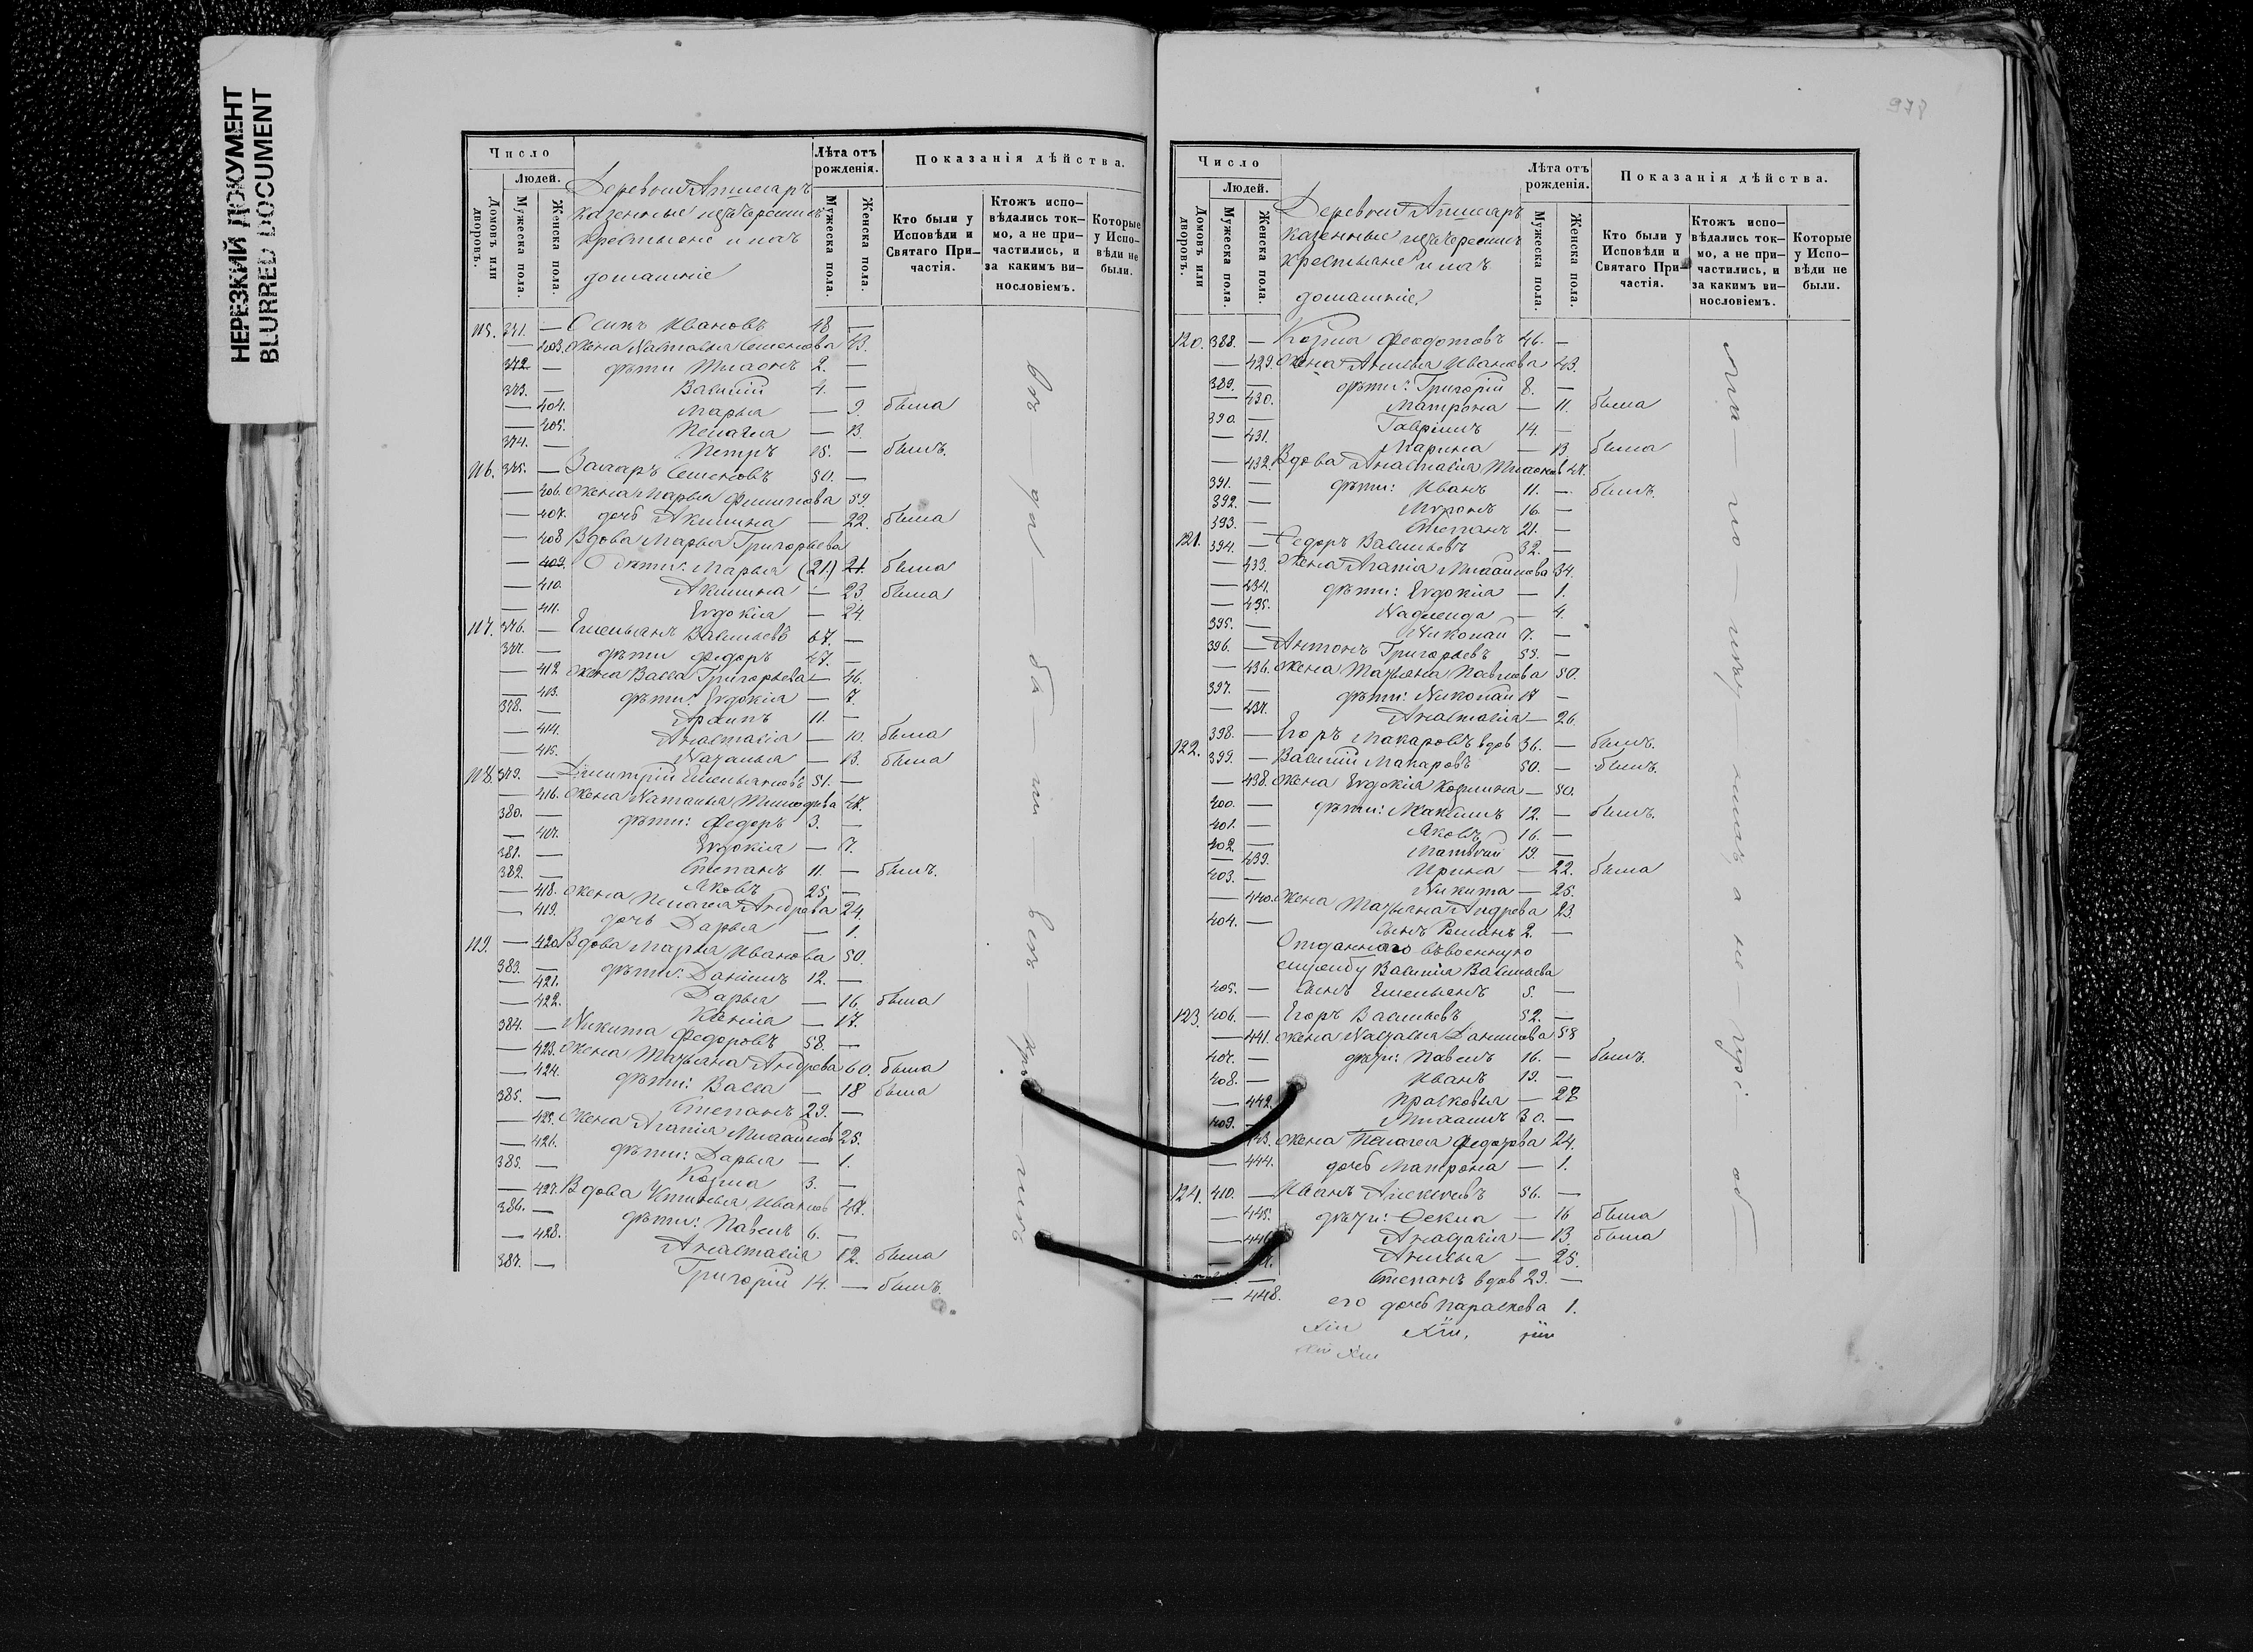 НЕРЕЗКИЙ ДОКУМЕНТ
BLURRED DOCUMENT
978
Число
Людей.
Домовъ или дворовъ.
Мужеска пола.
Женска пола.
Деревни
казенные
крестьяне и ихъ
домашніе
Лѣта отъ рожденія.
Мужеска пола.
Женска пола.
Показанія дѣйства.
Кто были у Исповѣди и Святаго При-частія.
Ктожъ испо-вѣдались ток-мо, а не при-частились, и за какимъ ви-нословіемъ.
Которые у Испо-вѣди не были.
115. 371. — Осипъ Ивановъ 48 —
— 403. Жена Наталья Семенова 43.
372. — дѣти 2. —
373. — Василій 4. —
— 404. Марья — 9. была
— 405. Пелагея — 13.
374. — Петръ 15. — былъ.
116. 375. — Захаръ Семеновъ 50. —
— 406. Жена Марья Филипова 59.
— 407. дочь Акилина — 22. была
— 408 Вдова Марья Григорьева
— 409. дѣти: Марья (21.) 21. была
— 410. Акилина — 23. была
— 411. Евдокія — 24.
117. 376. — Емельянъ Васильевъ 67. —
377. — дѣти Федоръ 47. —
— 412 Жена Васса Григорьева — 46.
— 413. дѣти: Евдокія — 7.
378. — Архипъ 11. —
— 414. Анастасія — 10. была
— 415. Наталья — 13. была
118. 379. — Димитрій Емельяновъ 51. —
— 416. Жена Наталья 47.
380. — дѣти: Федоръ 3. —
— 407. Евдокія — 7.
381. — Степанъ 11. — былъ.
382. — Яковъ 25. —
— 418. Жена Пелагея Андрева 24.
— 419. дочь Дарья — 1.
119. — 420. Вдова Марья Иванова 50.
383. — дѣти: Даніилъ 12. —
— 421. Дарья — 16. была
— 422. Ксенія — 17.
384. — Никита Федоровъ 58. —
— 423. Жена Татьяна Андрева 60. была
— 424. дѣти: Васса — 18 была
385. — Степанъ 29. —
— 425. Жена Агапія 25.
— 426. дѣти: Дарья — 1.
385. — Козма 3. —
— 427. Вдова Устинья Иванов 47.
386. — дѣти: Павелъ 6. —
— 428. Анастасія 12. была
387. — Григорій 14. — былъ.
Число
Людей.
Домовъ или дворовъ.
Мужеска пола.
Женска пола.
Деревни
казенные
крестьяне и ихъ
домашніе
Лѣта отъ рожденія.
Мужеска пола.
Женска пола.
Показанія дѣйства.
Кто были у Исповѣди и Святаго При-частія.
Ктожъ испо-вѣдались ток-мо, а не при-частились, и за какимъ ви-нословіемъ.
Которые у Испо-вѣди не были.
120. 388. — Козма Феодотовъ 46. —
— 429. Жена Анисья Иванова 43.
389. — дѣти: Григорій 8. —
— 430. Матрона — 11. была
390. — Гавріилъ 14. —
— 431. Марина — 13 была
— 432. Вдова Анастасія 47.
391. — дѣти: Иванъ 11. — былъ.
392. — Миронъ 16. —
393. — Степанъ 21. —
121. 394. — Федоръ Васильевъ 32. —
— 433. Жена Агапія 34.
— 434. дѣти: Евдокія — 1.
— 435. Надежда — 4.
395. — Николай 7. —
396. — Антонъ Григорьевъ 55. —
— 436. Жена Татьяна Павлова 50.
397. — дѣти: Николай 17 —
— 437. Анастасія — 26.
398. — Егоръ Макаровъ вдов 36. — былъ.
122. 399. — Василій Макаровъ 50. — былъ.
— 438. Жена Евдокія Козмина — 50.
400. — дѣти: Максимъ 12. — былъ.
401. — Яковъ 16. —
402. — Матвей 19. —
— 439. Ирина — 22. была
403. — Никита — 25.
— 440. Жена Татьяна Андрева 23.
404. — сынъ Романъ 2. —
Отданного въ военную
службу Василія Васильева
405. — сынъ Емельянъ 5. —
123. 406. — Егоръ Васильевъ 52. —
— 441. Жена Наталья Данилова 58
407. — дѣти: Павелъ 16. — былъ.
408. — Иванъ 19. —
— 442. Прасковья — 27.
409. — Михаилъ 30. —
443. Жена Пелагея Федорова 24.
— 444. дочь Матрона — 1.
124. 410. — Иванъ Алексеевъ 56. —
— 445. дѣти: Фекла — 16 была
— 446 Анастасія — 13. была
— Анисья — 25.
— Степанъ вдов 29. —
— 448. его дочь Параскева 1.